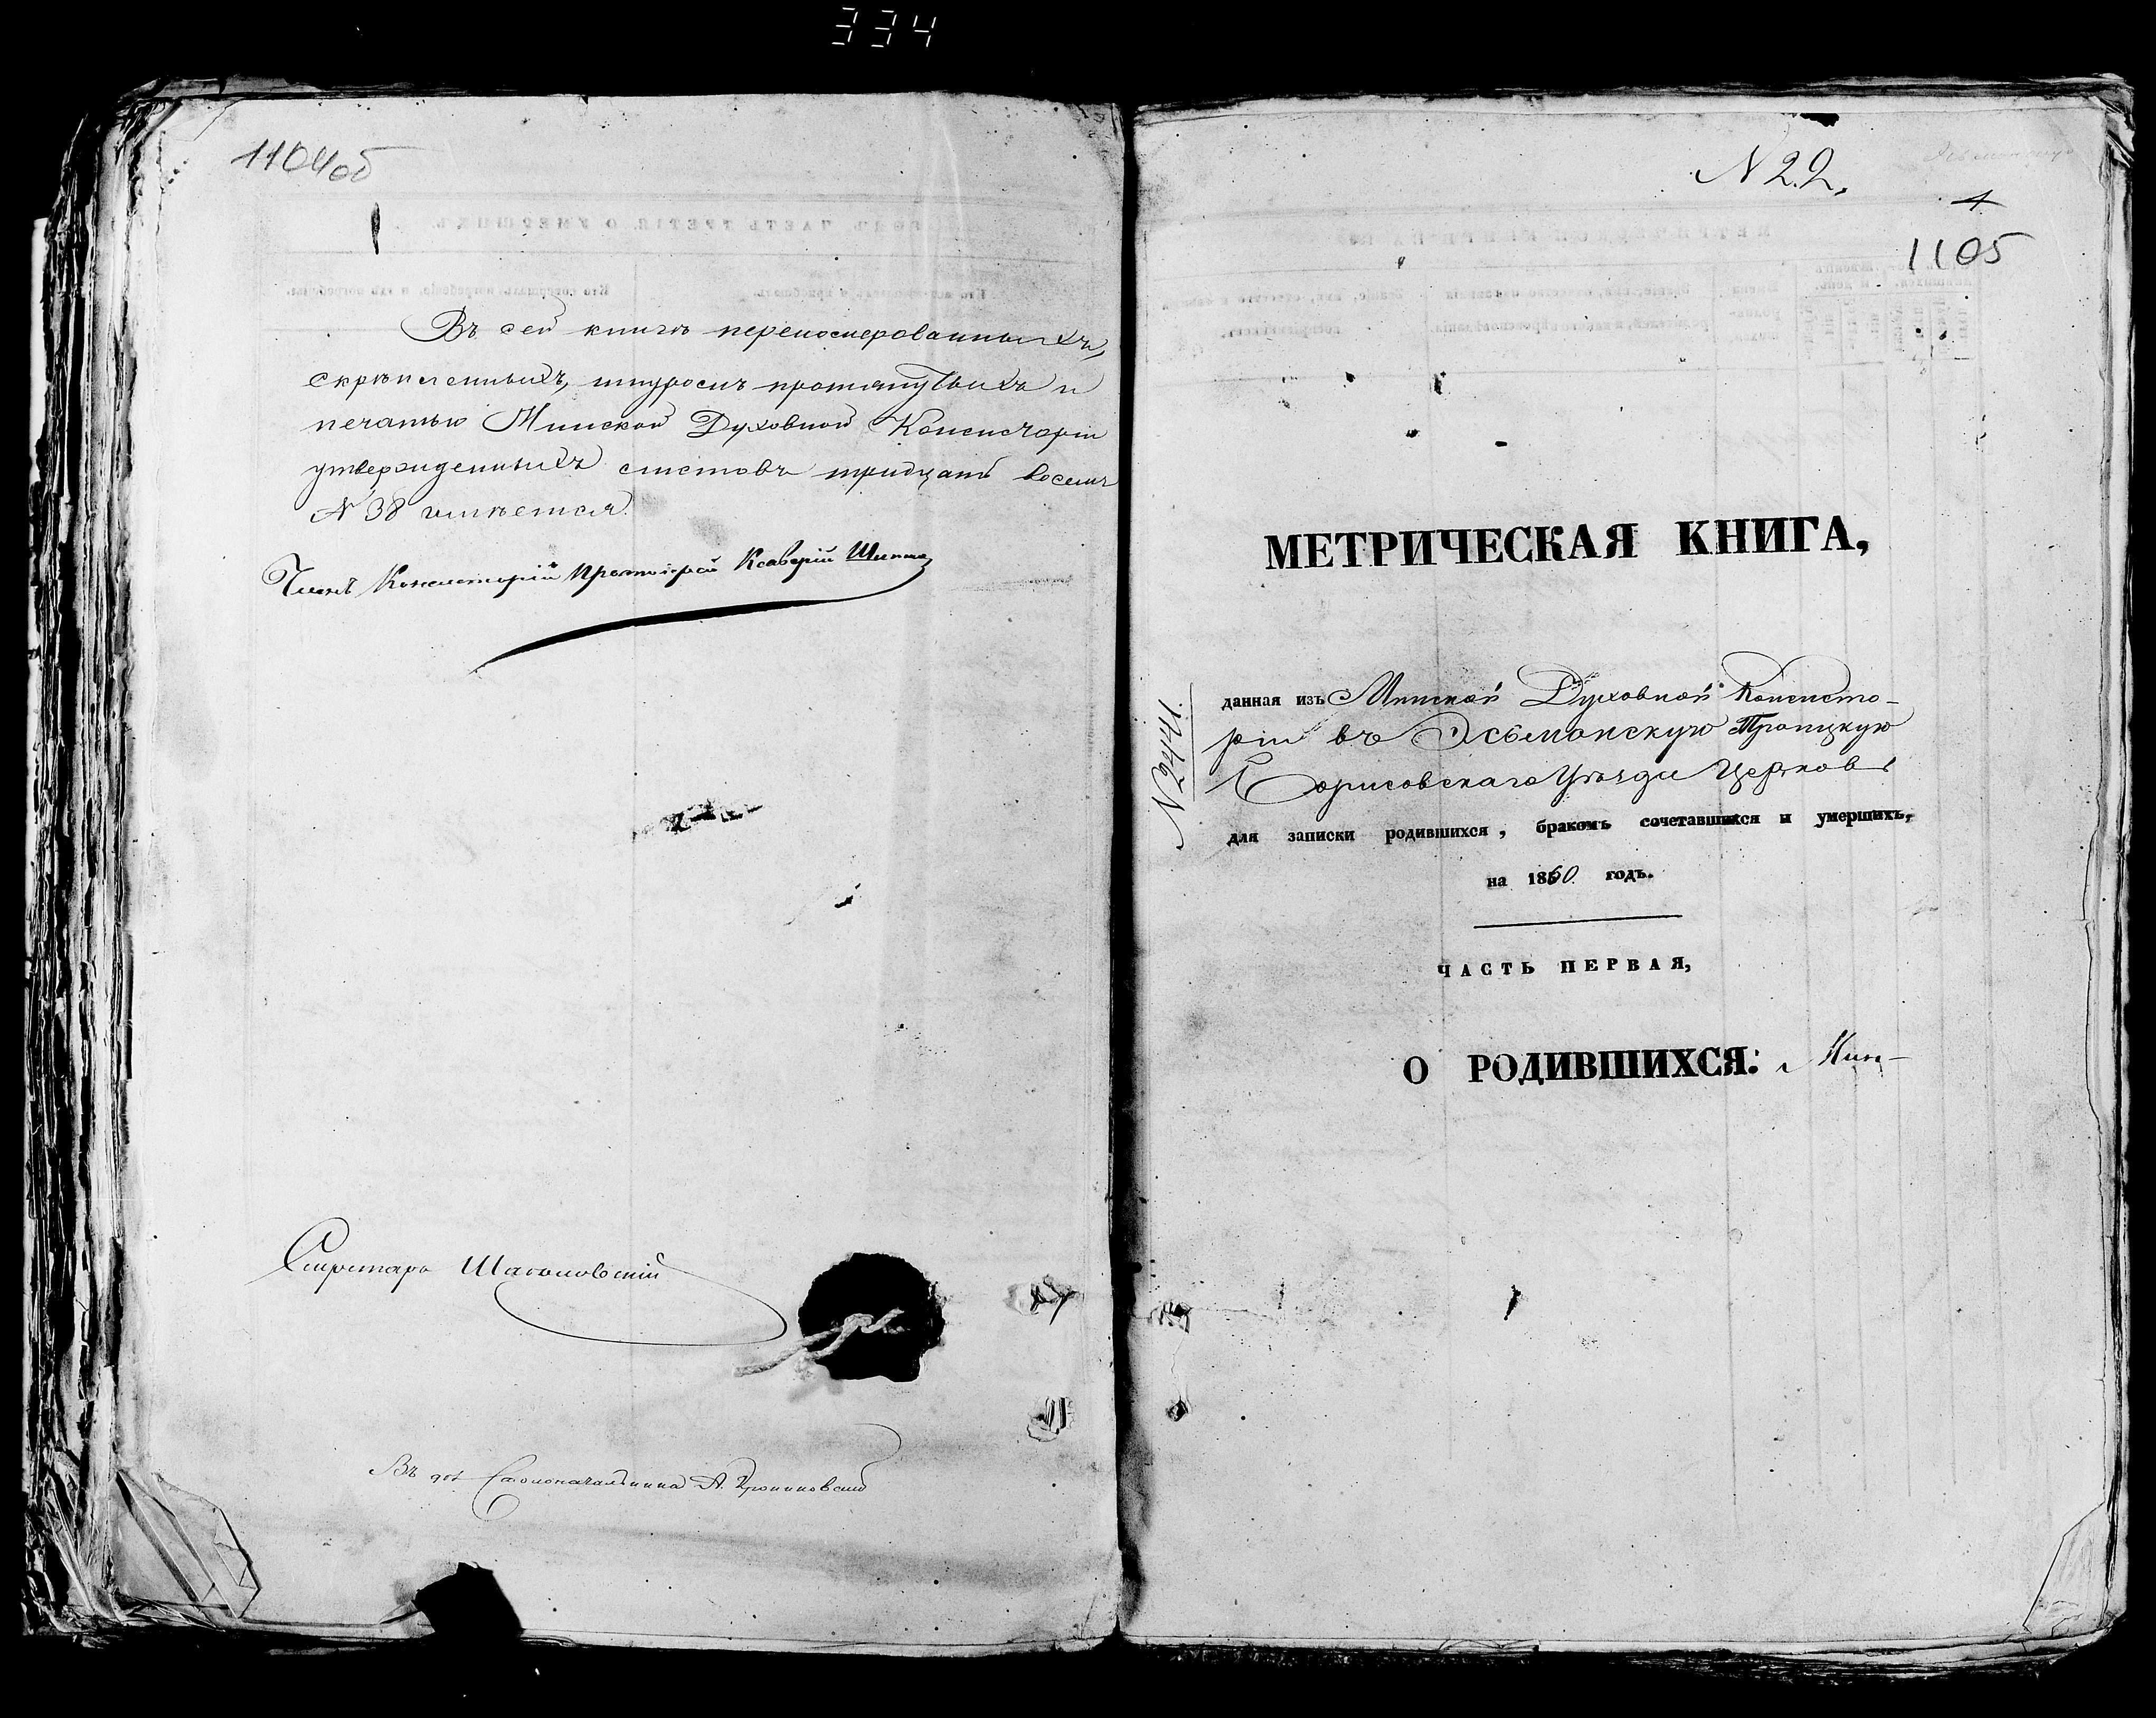 334
1104об
Въ сей книгѣ перенумерованныхъ,
скрѣпленныхъ, шнуромъ протянутыхъ и
печатью Минской Духовной Консисторіи
утвержденныхъ листовъ тридцать восемь
№ 38 имѣется.
Членъ Консисторіи Протоіерей Ксаверій
Секретарь
Въ дол. Столоначальника А.
№ 22.
1
1105
МЕТРИЧЕСКАЯ КНИГА,
№ 2441.
данная изъ Минской Духовной Консисто-
ріи въ Эсьмонскую Троицкую
Борисовскаго Уѣзда Церковь
для записки родившихся, бракомъ сочетавшихся и умершихъ,
на 1860 годъ.
ЧАСТЬ ПЕРВАЯ,
О РОДИВШИХСЯ: